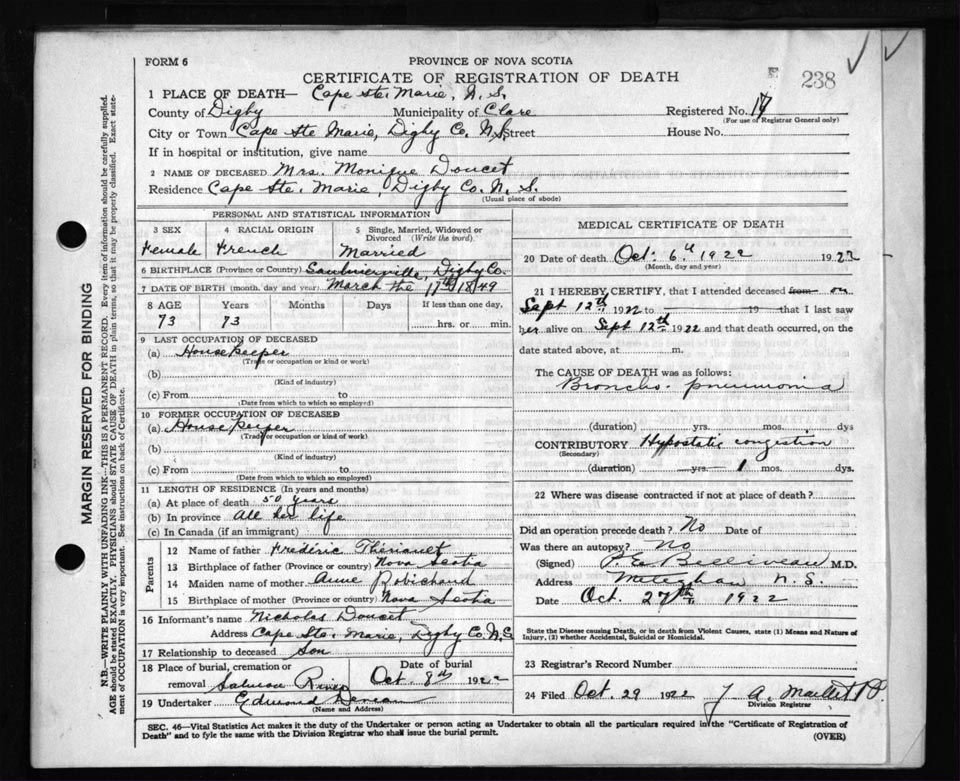 FORM 6
PROVINCE OF NOVA SCOTIA
CERTIFICATE OF REGISTRATION OF DEATH
238
1 PLACE OF DEATH— Cape Ste. Marie, N. S.
County of Digby Municipality of Clare Registered No. 17
(For use of Registrar General only)
City or Town Cape Ste Marie, Digby Co. N.S. Street House No.
If in hospital or institution, give name
2 NAME OF DECEASED Mrs. Monique Doucet
Residence Cape Ste. Marie, Digby Co. N. S.
(Usual place of abode)
PERSONAL AND STATISTICAL INFORMATION
3 SEX 4 RACIAL ORIGIN 5 Single, Married, Widowed or Divorced (Write the word).
Female French Married
6 BIRTHPLACE (Province or Country) Saulnierville, Digby Co.
7 DATE OF BIRTH (month, day and year) March the 17th 1849
8 AGE Years Months Days If less than one day,
73 73 hrs. or min.
9 LAST OCCUPATION OF DECEASED
(a) House Keeper
(Trade or occupation or kind or work)
(b)
(Kind of industry)
(c) From to
(Date from which to which so employed)
10 FORMER OCCUPATION OF DECEASED
(a) House Keeper
(Trade or occupation or kind of work)
(b)
(Kind of industry)
(c) From to
(Date from which to which so employed)
11 LENGTH OF RESIDENCE (In years and months)
(a) At place of death 50 years
(b) In province All her life
(c) In Canada (if an immigrant)
Parents
12 Name of father Frédéric Thériault
13 Birthplace of father (Province or country) Nova Scotia
14 Maiden name of mother Anne Robichaud
15 Birthplace of mother (Province or country) Nova Scotia
16 Informant's name Nicholas Doucet
Address Cape Ste. Marie, Digby Co. N.S.
17 Relationship to deceased Son
18 Place of burial, cremation or removal Salmon River Date of burial Oct 8th 1922
19 Undertaker Edmond
(Name and Address)
MEDICAL CERTIFICATE OF DEATH
20 Date of death Oct. 6th 1922 1922
(Month, day and year)
21 I HEREBY CERTIFY, that I attended deceased from on
Sept 12th 1922 to 19 that I last saw
her alive on Sept 12th 1922 and that death occurred, on the
date stated above, at m.
The CAUSE OF DEATH was as follows:
Broncho-pneumonia
(duration) yrs. mos. dys
CONTRIBUTORY Hypostatic congestion
(Secondary)
(duration) yrs. 1 mos. dys.
22 Where was disease contracted if not at place of death?
Did an operation precede death? No Date of
Was there an autopsy? No
(Signed) P. E. Belliveau M.D.
Address Meteghan N.S.
Date Oct. 27th 1922
State the Disease causing Death, or in death from Violent Causes, state (1) Means and Nature of
Injury, (2) whether Accidental, Suicidal or Homicidal.
23 Registrar's Record Number
24 Filed Oct. 29 1922 J A.
Division Registrar
SEC. 46—Vital Statistics Act makes it the duty of the Undertaker or person acting as Undertaker to obtain all the particulars required in the "Certificate of Registration of
Death" and to fyle the same with the Division Registrar who shall issue the burial permit. (OVER)
MARGIN RESERVED FOR BINDING
N.B.—WRITE PLAINLY WITH UNFADING INK—THIS IS A PERMANENT RECORD. Every item of information should be carefully supplied.
AGE should be stated EXACTLY. PHYSICIANS should STATE CAUSE OF DEATH in plain terms, so that it may be properly classified. Exact statement
of OCCUPATION is very important. See instructions on back of Certificate.